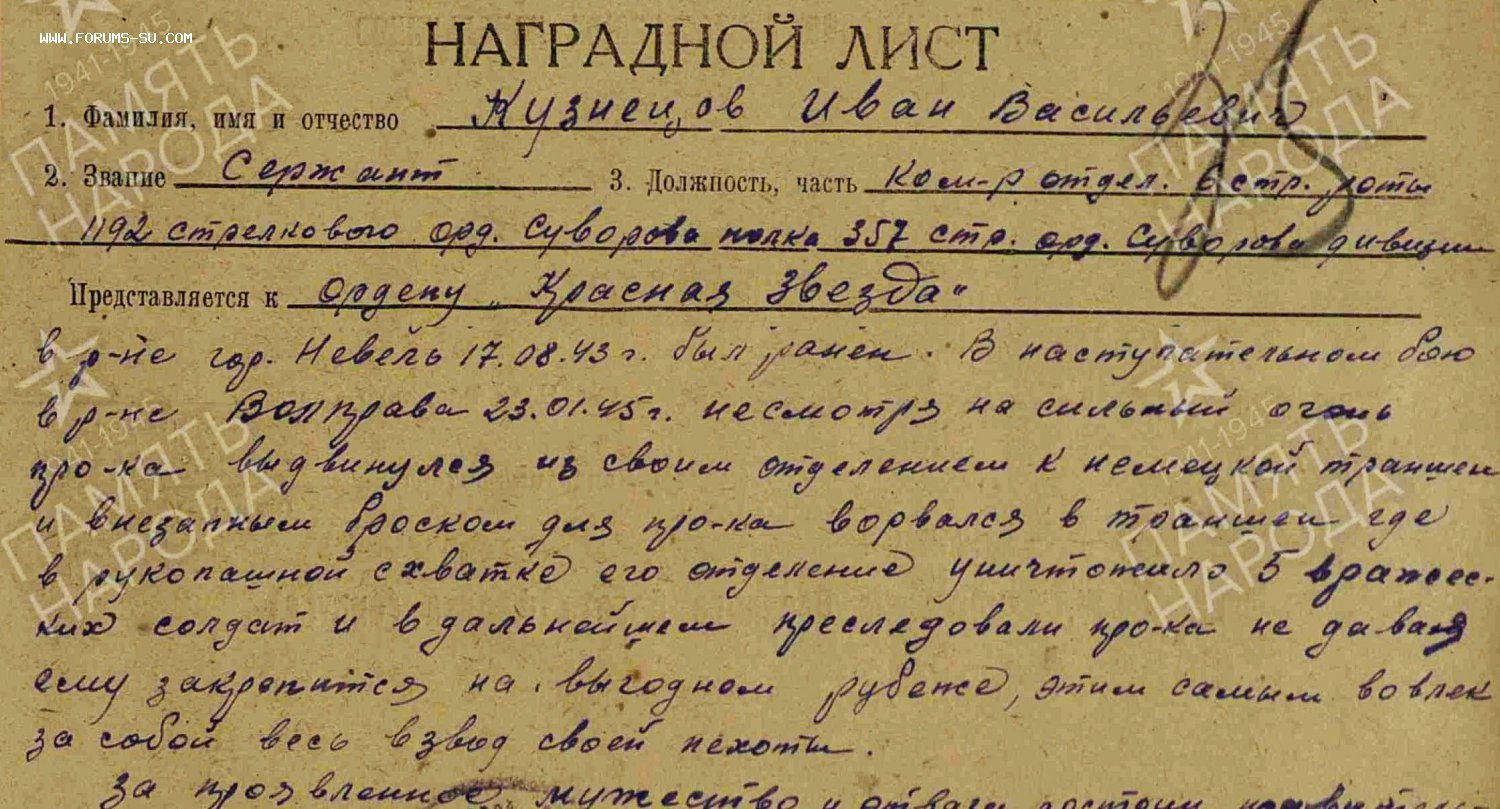 WWW.FORUMS-SU.COM
НАГРАДНОЙ ЛИСТ
1. Фамилия, имя и отчество Кузнецов Иван Васильевич
2. Звание Сержант 3. Должность, часть Ком-р отдел. 6 стр. роты
1192 стрелкового орд. Суворова полка 357 стр. орд. Суворова дивизии
Представляется к ордену „Красная Звезда"
в р-не гор. Невель 17.08.43 г. был ранен. В наступательном бою
в р-не Волправа 23.01.45 г. несмотря на сильный огонь
про-ка выдвинулся из своим отделением к немецкой траншеи
и внезапным броском для про-ка ворвался в траншеи где
в рукопашной схватке его отделение уничтожило 5 вражес-
ких солдат и в дальнейшем преследовали про-ка не давая
ему закрепится на выгодном рубеже, этим самым вовлек
за собой весь взвод своей пехоты.
За проявленное мужество и отвага достоин
1941-1945
ПАМЯТЬ
НАРОДА
1941-1945
ПАМЯТЬ
НАРОДА
1941-1945
ПАМЯТЬ
НАРОДА
1941-1945
ПАМЯТЬ
НАРОДА